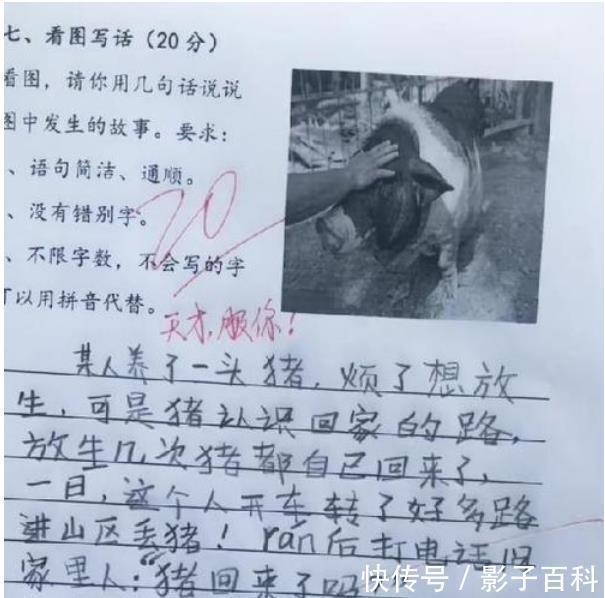 七、看图写话（20分）
看图，请你用几句话说说
图中发生的故事。要求：
、语句简洁、通顺。
、没有错别字。
、不限字数，不会写的字
可以用拼音代替。
20
天才，服你！
某人养了一头猪，烦了想放
生，可是猪认识回家的路，
放生几次猪都自己回来了，
一日，这个人开车转了好多路
进山区丢猪！rán后打电话问
家里人："猪回来了吗
快传号/影子百科